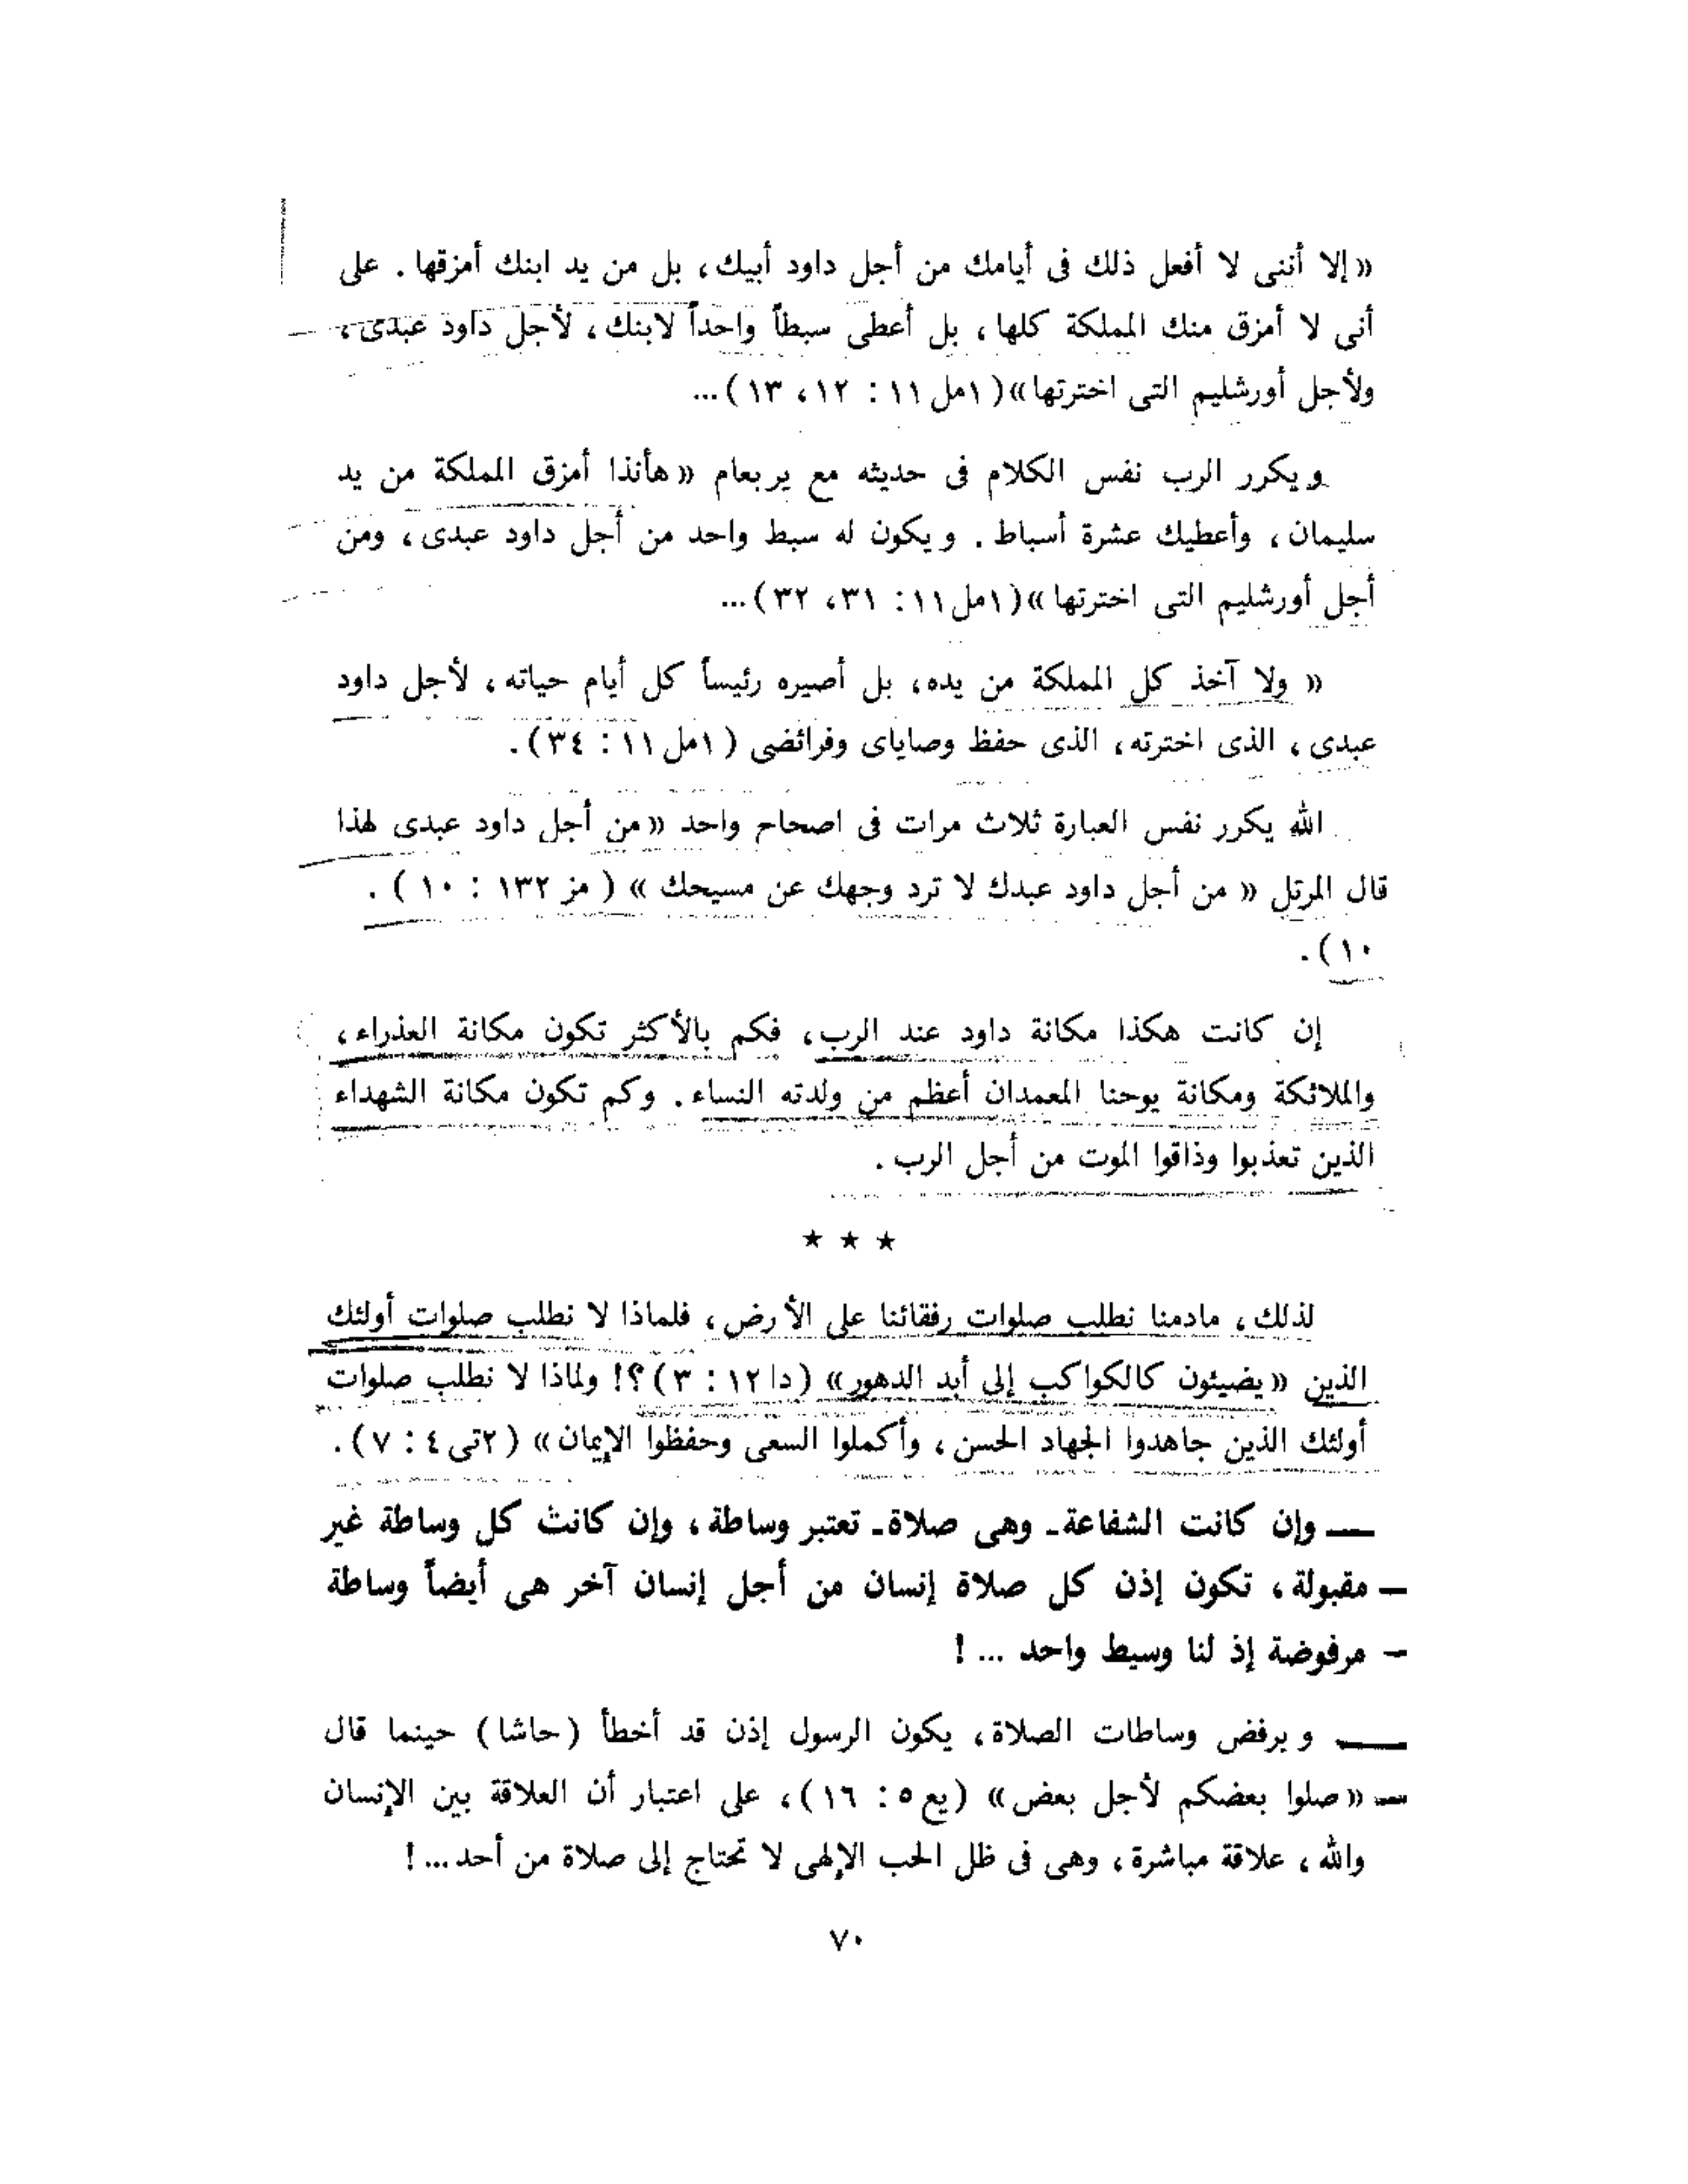 « إلا أننى لا أفعل ذلك فى أيامك من أجل داود أبيك، بل من يد ابنك أمزقها. على
أنى لا أمزق منك المملكة كلها، بل أعطى سبطاً واحداً لابنك، لأجل داود عبدى،
ولأجل أورشليم التى اخترتها» (١مل ١١ : ١٢، ١٣)...
ويكرر الرب نفس الكلام فى حديثه مع يربعام «هأنذا أمزق المملكة من يد
سليمان، وأعطيك عشرة أسباط. ويكون له سبط واحد من أجل داود عبدى، ومن
أجل أورشليم التى اخترتها» (١مل ١١: ٣١، ٣٢)...
« ولا آخذ كل المملكة من يده، بل أصيره رئيساً كل أيام حياته، لأجل داود
عبدى، الذى اخترته، الذى حفظ وصاياى وفرائضى (١مل ١١ : ٣٤).
الله يكرر نفس العبارة ثلاث مرات فى اصحاح واحد «من أجل داود عبدى لهذا
قال المرتل « من أجل داود عبدك لا ترد وجهك عن مسيحك » ( مز ١٣٢ : ١٠ ) .
١٠).
إن كانت هكذا مكانة داود عند الرب، فكم بالأكثر تكون مكانة العذراء،
والملائكة ومكانة يوحنا المعمدان أعظم من ولدته النساء. وكم تكون مكانة الشهداء
الذين تعذبوا وذاقوا الموت من أجل الرب.
★ ★ ★
لذلك، مادمنا نطلب صلوات رفقائنا على الأرض، فلماذا لا نطلب صلوات أولئك
الذين «يضيئون كالكواكب إلى أبد الدهور» (دا ١٢ : ٣)؟! ولماذا لا نطلب صلوات
أولئك الذين جاهدوا الجهاد الحسن، وأكملوا السعى وحفظوا الإيمان» (٢تى ٤ : ٧).
وإن كانت الشفاعة ـ وهى صلاة ـ تعتبر وساطة، وإن كانت كل وساطة غير
مقبولة، تكون إذن كل صلاة إنسان من أجل إنسان آخر هى أيضاً وساطة
مرفوضة إذ لنا وسيط واحد ... !
وبرفض وساطات الصلاة، يكون الرسول إذن قد أخطأ (حاشا) حينما قال
«صلوا بعضكم لأجل بعض» (يع ٥: ١٦)، على اعتبار أن العلاقة بين الإنسان
والله، علاقة مباشرة، وهى فى ظل الحب الإلهى لا تحتاج إلى صلاة من أحد... !
٧٠